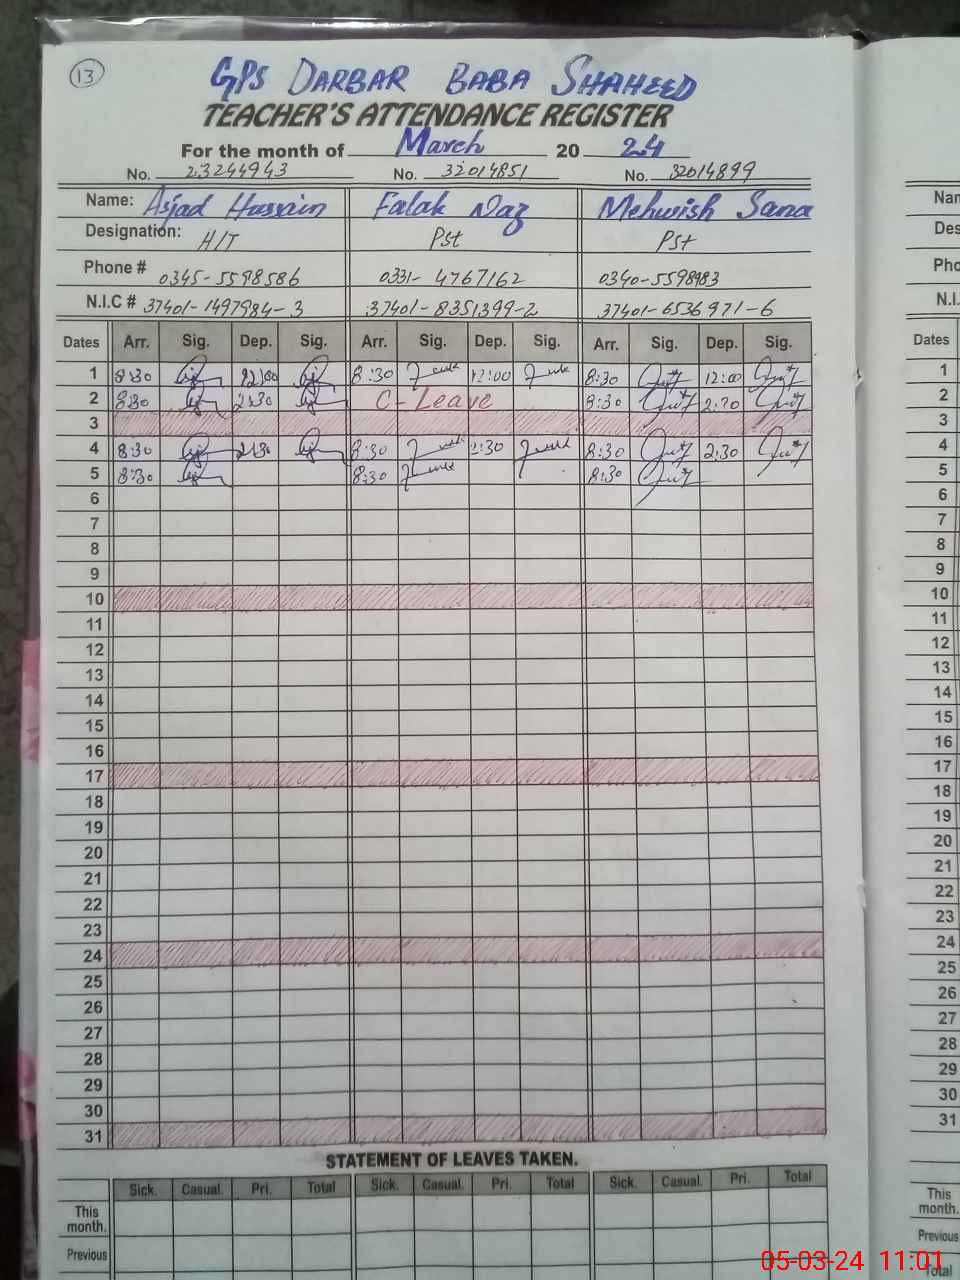 13
GPS DARBAR BABA SHAHEED
TEACHER'S ATTENDANCE REGISTER
For the month of March 20 24
No. 23244943 No. 32014851 No. 32014899
Name: Asjad Hussain Falak Naz Mehwish Sana
Designation: H/T Pst Pst
Phone # 0345-5598586 0331-4767162 0340-5598983
N.I.C # 37401-1497984-3 37401-8351399-2 37401-6536971-6
Dates Arr. Sig. Dep. Sig. Arr. Sig. Dep. Sig. Arr. Sig. Dep. Sig.
1 8:30 12:00 8:30 12:00 8:30 12:00
2 8:30 2:30 C-Leave 8:30 2:30
3
4 8:30 2:30 8:30 2:30 8:30 2:30
5 8:30 8:30 8:30
6
7
8
9
10
11
12
13
14
15
16
17
18
19
20
21
22
23
24
25
26
27
28
29
30
31
STATEMENT OF LEAVES TAKEN.
Sick. Casual. Pri. Total Sick. Casual. Pri. Total Sick. Casual. Pri. Total
This month.
Previous
Nam
Des
Pho
N.I.
Dates
1
2
3
4
5
6
7
8
9
10
11
12
13
14
15
16
17
18
19
20
21
22
23
24
25
26
27
28
29
30
31
This month.
Previous
Total
05-03-24 11:01